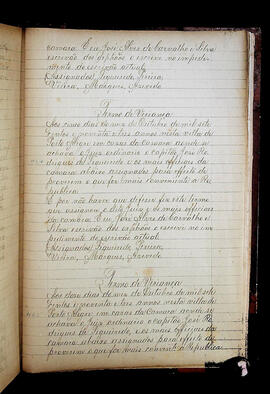 camara. Eu José Alves de Carvalho e Silva
escrivão dos orphãos o escrevi no impedi-
mento do escrivão actual.
(Assignados) Siqueira, Pereira,
Vieira, Marques, Azevedo
Termo de Vereança
Aos cinco dias do mez de Outubro de mil sete
centos e noventa e tres annos nesta villa de
Porto Alegre em casas da camara aonde se
achava o Juiz ordinario o capitão José Ro
drigues de Siqueira e os mais officiaes da
camara abaixo assignados para effeito de
proverem o que for mais conveniente á Re
publica
E por não haver que deferir fiz este termo
que assignaram o dito Juiz e os mais officiaes
da camara. Eu José Alves de Carvalho e
Silva escrivão dos orphãos o escrevi no im
pedimento do escrivão actual
(Assignados) Siqueira, Pereira,
Vieira, Marques, Azevedo
Termo de Vereança
Aos doze dias do mez de Outubro de mil sete
centos e noventa e tres annos nesta villa de
Porto Alegre em casas da Camara aonde se
achava o Juiz ordinario o capitão José Ro
drigues de Siqueira, e os mais officiaes da
camara abaixo assignados para effeito de
proverem o que for mais conveniente á Republica